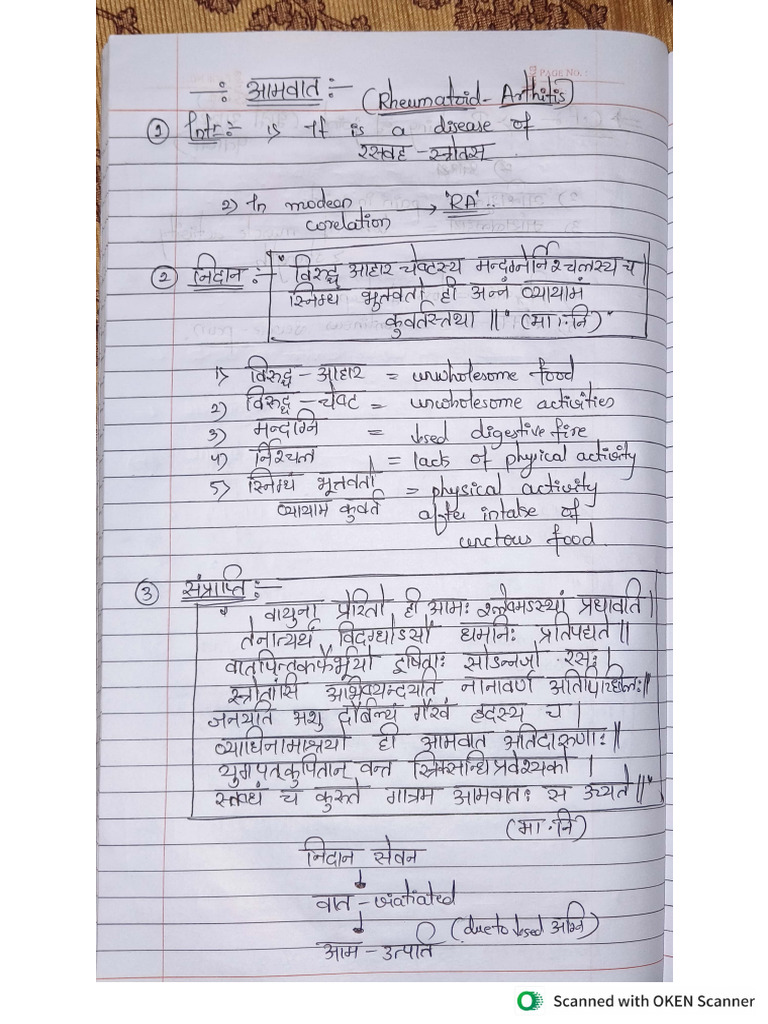 PAGE NO. :
-: आमवात :- (Rheumatoid - Arthitis)
① Intr :- 1) It is a disease of
रसवह - स्त्रोतस .
2) In modean → 'RA' ..
corelation
② निदान :- " विरुद्ध आहार चेष्टस्य मन्दग्नेर्निश्चलस्य च |
स्निग्ध भूतवतो ही अन्नं व्यायामं
कुर्वतस्तथा || " (मा.नि) "
1) विरुद्ध - आहार = unwholesome food
2) विरुद्ध - चेष्ट = unwholesome activities
3) मन्दग्नि = digestive fire
4) र्निश्चल = lacks of physical activity
5) स्निग्ध भूतवतो = physical activity
व्यायाम कुर्वत after intake of
unctous food.
③ संप्राप्ति :-
" वायुना प्रेरितो ही आमः श्लेष्मऽस्थां प्रधावति |
तेनात्यर्थं विदग्धोऽसौ धमनिः प्रतिपद्यते ||
वातपित्तकफैर्भूयो दूषिताः सोऽन्नजो रसः |
स्त्रोतांसि अभिष्यन्दयति नानावर्ण अतिपिच्छिलः ||
जनयति अशु दौर्बल्यं गौरवं हृदस्य च |
व्याधिनामाश्रयो ही आमवात अतिदारूणाः ||
युगपत्कुपितान् वन्त त्रिकसन्धिप्रवेश्यको |
स्तब्धं च कुरूते गात्रम आमवातः स ऊच्यते || "
(मा.नि)
निदान सेवन
↓
वात -
↓
आम - उत्पत्ति (due to अग्नि)
Scanned with OKEN Scanner